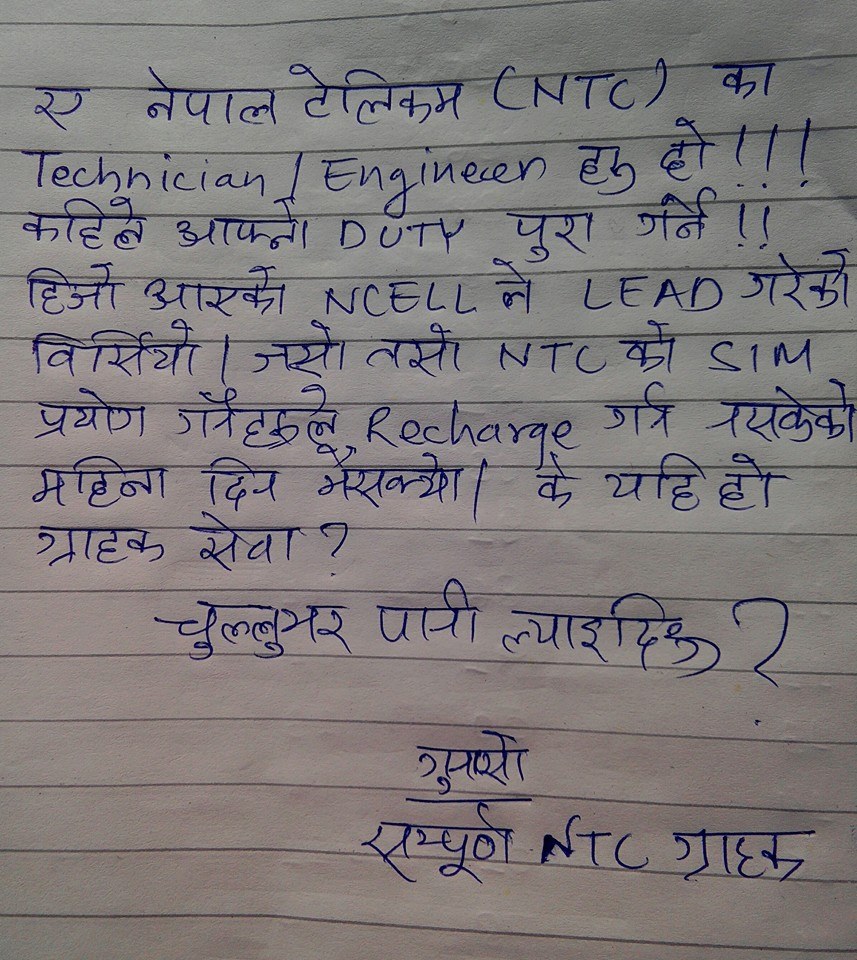 ए नेपाल टेलिकम (NTC) का
Technician / Engineer हरु हो !!!
कहिले आफ्नो DUTY पुरा गर्ने !!
हिजो आएको NCELL ले LEAD गरेको
विर्सियो | जसो तसो NTC को SIM
प्रयोग गर्नेहरुले Recharge गर्न नसकेको
महिना दिन भैसक्यो | के यहि हो
ग्राहक सेवा ?
चुल्लुभर पानी ल्याइदिऊ ?
गुनासो
सम्पूर्ण NTC ग्राहक